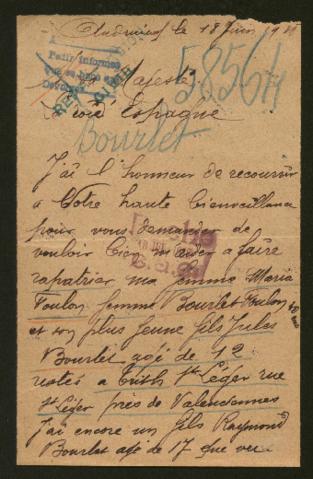 le 18 Juin 19
Pedir informes
58564
Majesté
Espagne
Bourlet
J'ai l'honneur de recourir
a Votre haute bienveillance
pour vous demander de
vouloir bien m'aider a faire
rapatrier ma femme Maria
Toulon femme Bourlet-Toulon
et son plus Jeune fils Jules
Bourlet agé de 12
restés a Trith St Léger rue
St Léger près de Valenciennes
j'ai encore un fils Raymond
Bourlet agé de 17 que